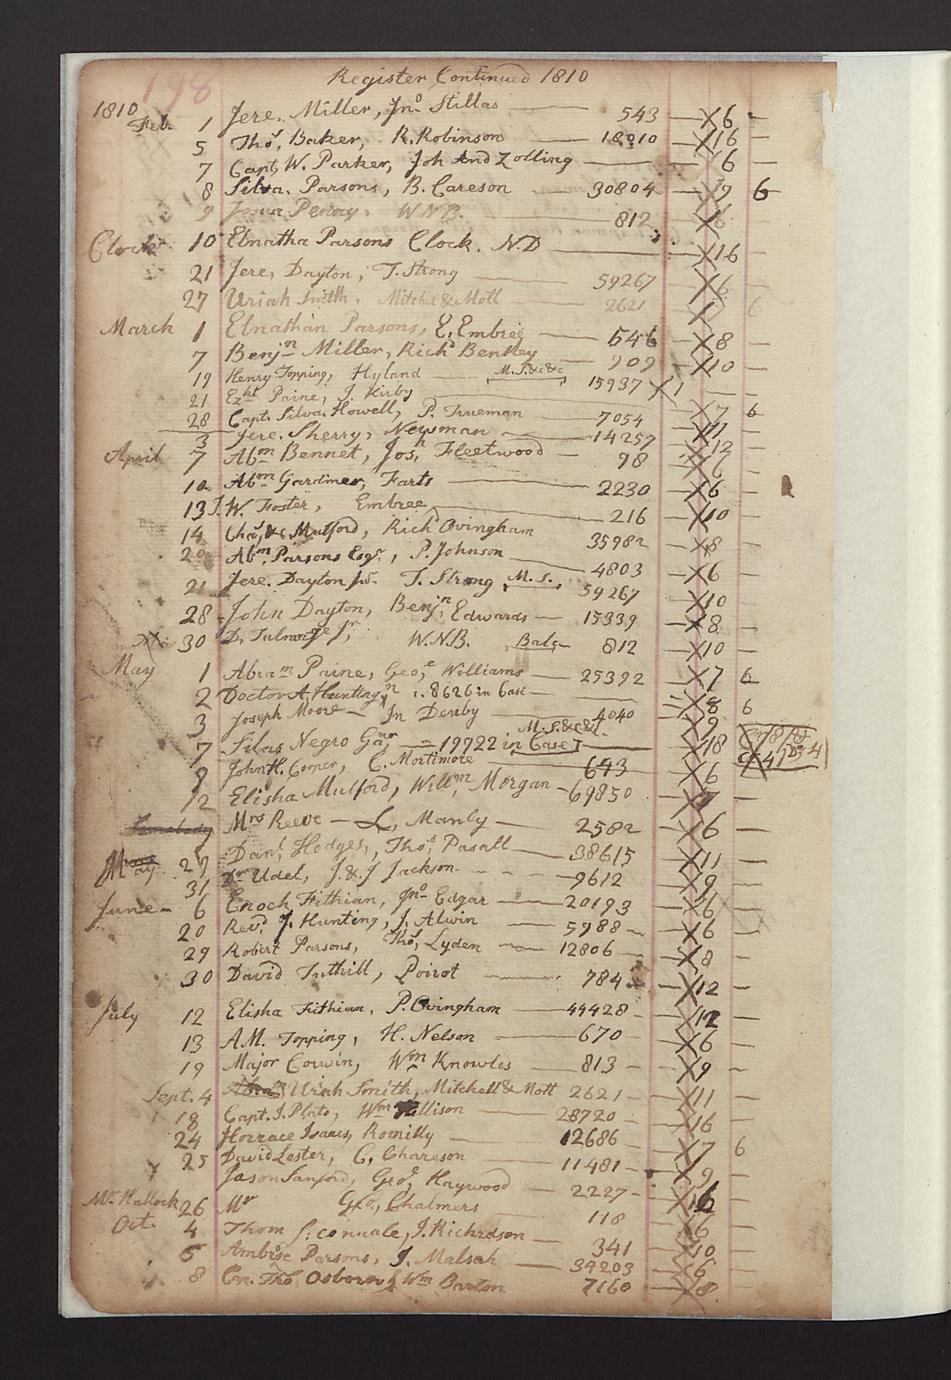 198
Register Continued 1810
1810 Feb. 1 Jere. Miller, Jno Stillas 543 X 6 -
5 Thos, Baker, R. Robinson 18010 X 16 -
7 Capt, W. Parker, Joh And Zolling X 6 -
8 Silva. Parsons, B. Careson 30804 X 9 6
9 Penny, W.N.B. 812 X 6 -
Clock 10 Elnatha Parsons Clock. N.D X 16 -
21 Jere, Dayton, T. Strong 59267 X 6 -
27 Uriah Smith, Mitchel & Mott 2621 X 6
March 1 Elnathan Parsons, E, Embree 546 X 8 -
7 Benjn Miller, Richd Bentley 909 X 10 -
19 Henry Topping, Hyland M.S.&c&c 15937 X 1
21 Ezkl Paine, J. Kirby X 7 6
28 Capt. Silva. Howell, P. Trueman 7054 X 11 -
3 Jere. Sherry, Newsman 14257 X 12 -
April 7 Abm Bennet, Josh Fleetwood 98 X 6 -
10 Abm Gardiner, Farts 2230 X 6 -
13 J. W. Foster, Embree 216 X 10 -
14 Chas, &c Mulford, Richd Ovingham 35982 X 8 -
20 Abm. Parsons Esqr., P. Johnson 4803 X 6 -
21 Jere. Dayton Jr. T. Strong M.S. 59267 X 10 -
28 John Dayton, Benjn, Edwards 15339 X 8 -
30 D. Talmage Jr, W.N.B. Bals 812 X 10 -
May 1 Abram Paine, Geoe Williams 25392 X 7 6
2 Doctor A, Huntingn i. 8626 in Case X 8 6
3 Joseph Moore - Jn Denby 4040 X 9
7 Silas Negro Ganr - 19722 in Case M.S.&c&c X 18
9 John H. Cooper, C. Mortimore 643 X 6
12 Elisha Mulford, Willm, Morgan 69850 X 7 -
Mrs Reeve - L, Manly 2582 X 6 -
May 29 Danl, Hodges, Thos, Pasall 38615 X 11 -
31 Dr Udel, J. & J Jackson 9612 X 9 -
June 6 Enoch Fithian, Jno Edgar 20193 X 6 -
20 Revd. J. Hunting, J. Alwin 5988 X 6 -
29 Robert Parsons, Thos, Lyden 12806 X 8 -
30 David Tuthill, Poirot 784 X 12 -
July 12 Elisha Fithian, P. Ovingham 44428 X 12 -
13 A.M. Topping, H. Nelson 670 X 6 -
19 Major Corwin, Wm Knowles 813 X 9 -
Sept. 4 Uriah Smith, Mitchell & Mott 2621 X 11 -
18 Capt. J. Plato, Wm 28720 X 16 -
24 Horrace Isaacs, Romilly 12686 X 7 6
25 David Lester, C, Chareson 11481 X 9 -
Jason Sanford, Geoe, Haywood 2227 X 16 -
Mr. Hallock 26 Mr Geo, Chalmers 118 X 6 -
Oct. 4 Thom J. Richrdson 341 X 10 -
5 Ambrse Parsons, J. Malsah 34203 X 6 -
8 Thos, Osborn & Wm Barton 7160 X 8 -